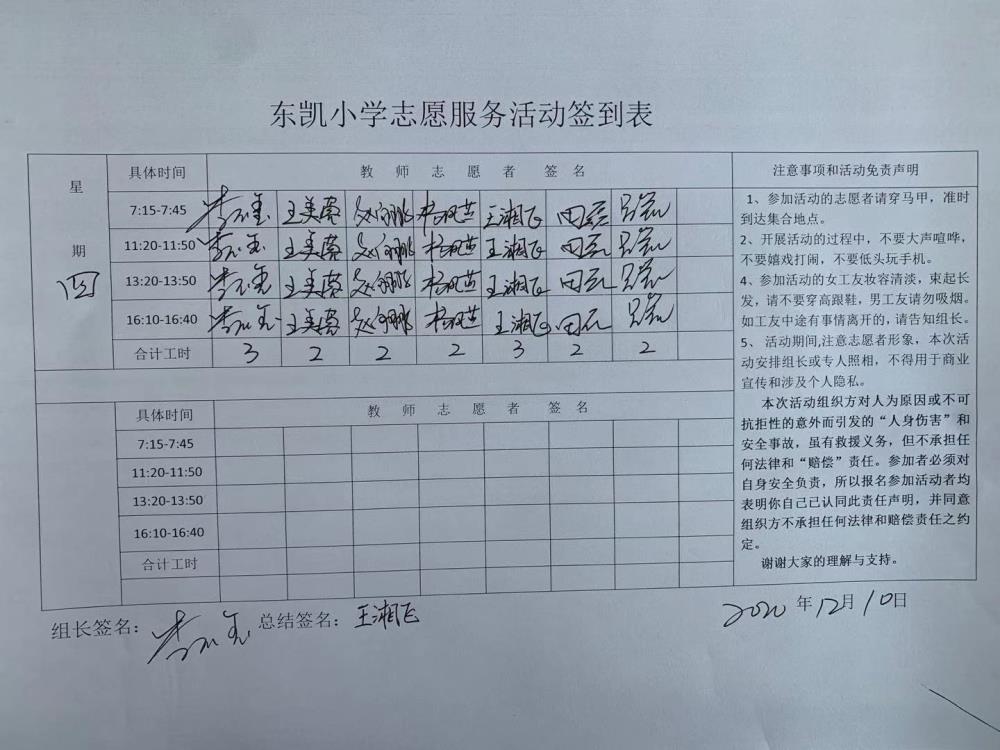 东凯小学志愿服务活动签到表
星期 四
具体时间 教师志愿者签名 注意事项和活动免责声明
7:15-7:45 王美蓉 王湘飞
11:20-11:50 王美蓉 王湘飞
13:20-13:50 王美蓉 王湘飞
16:10-16:40 王美蓉 王湘飞
合计工时 3 2 2 2 3 2 2
具体时间 教师志愿者签名
7:15-7:45
11:20-11:50
13:20-13:50
16:10-16:40
合计工时
1、参加活动的志愿者请穿马甲，准时
到达集合地点。
2、开展活动的过程中，不要大声喧哗，
不要嬉戏打闹，不要低头玩手机。
4、参加活动的女工友妆容清淡，束起长
发，请不要穿高跟鞋，男工友请勿吸烟。
如工友中途有事情离开的，请告知组长。
5、 活动期间,注意志愿者形象，本次活
动安排组长或专人照相，不得用于商业
宣传和涉及个人隐私。
本次活动组织方对人为原因或不可
抗拒性的意外而引发的“人身伤害”和
安全事故，虽有救援义务，但不承担任
何法律和“赔偿”责任。参加者必须对
自身安全负责，所以报名参加活动者均
表明你自己已认同此责任声明，并同意
组织方不承担任何法律和赔偿责任之约
定。
谢谢大家的理解与支持。
组长签名： 总结签名：王湘飞 2020年12月10日